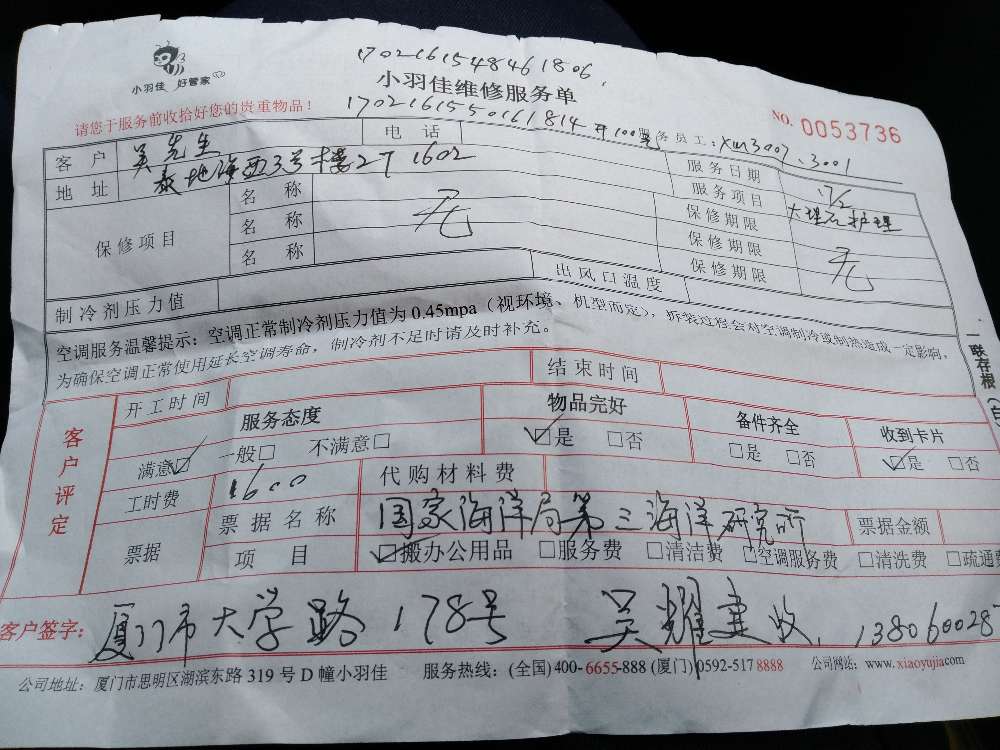 小羽佳 好管家
170216154846 1806
小羽佳维修服务单
请您于服务前收拾好您的贵重物品!
170216155016 1814 开100元
服务员工: XM3007、3001
NO. 0053736
客户 吴先生 电话 服务日期 17/2
地址 泰地海西3号楼27 1602 服务项目 大理石护理
保修项目 名称 无 保修期限 无
名称 保修期限
名称 保修期限
制冷剂压力值 出风口温度
空调服务温馨提示:空调正常制冷剂压力值为0.45mpa(视环境、机型而定),拆装过程会对空调制冷或制热造成一定影响,
为确保空调正常使用延长空调寿命,制冷剂不足时请及时补充。
一联存根(白
客户评定
开工时间 结束时间
服务态度 物品完好 备件齐全 收到卡片
满意☑ 一般□ 不满意□ ☑是 □否 □是 □否 ☑是 □否
工时费 1600 代购材料费
票据 票据名称 国家海洋局第三海洋研究所 票据金额
项目 ☑搬办公用品 □服务费 □清洁费 □空调服务费 □清洗费 □疏通费
客户签字: 厦门市大学路178号 吴耀建收 138060028
公司地址:厦门市思明区湖滨东路319号D幢小羽佳 服务热线:(全国)400-6655-888 (厦门)0592-517 8888 公司网站:www.xiaoyujia.com